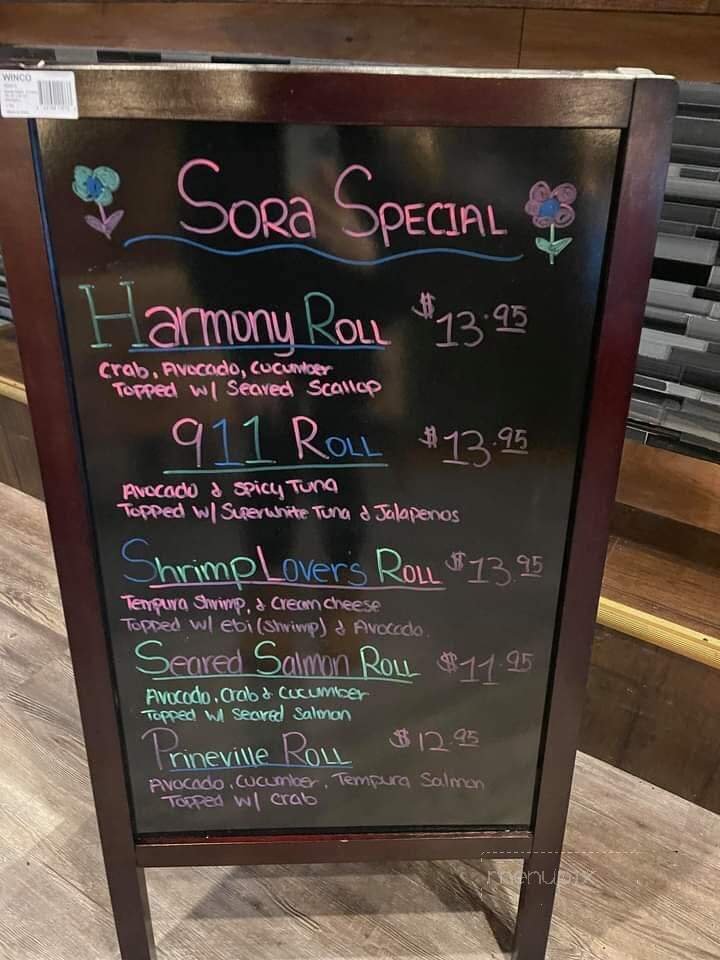 WINCO
SORA SPECIAL
Harmony Roll $13.95
Crab, Avocado, Cucumber
Topped w/ Seared Scallop
911 Roll $13.95
Avocado & Spicy Tuna
Topped w/ Superwhite Tuna & Jalapenos
Shrimp Lovers Roll $13.95
Tempura Shrimp, & Cream cheese
Topped w/ ebi (shrimp) & Avocado.
Seared Salmon Roll $11.95
Avocado, Crab & Cucumber
Topped w/ Seared Salmon
Prineville Roll $12.95
Avocado, Cucumber, Tempura Salmon
Topped w/ Crab
menupix